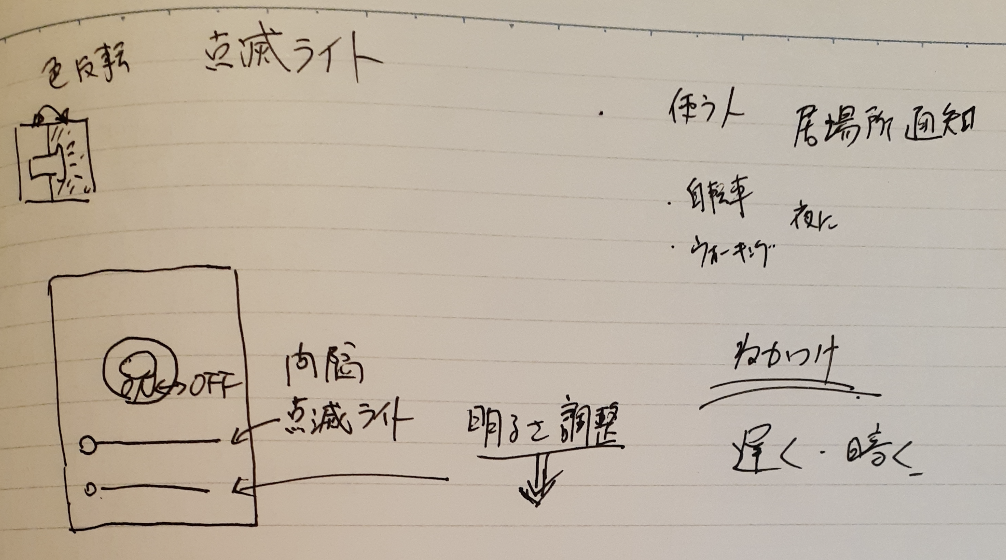 色反転
点滅ライト
使う人 居場所通知
・自転車 夜に
・ウォーキング
ON⇔OFF
間隔
点滅ライト
明るさ調整
ねかつけ
遅く・暗く